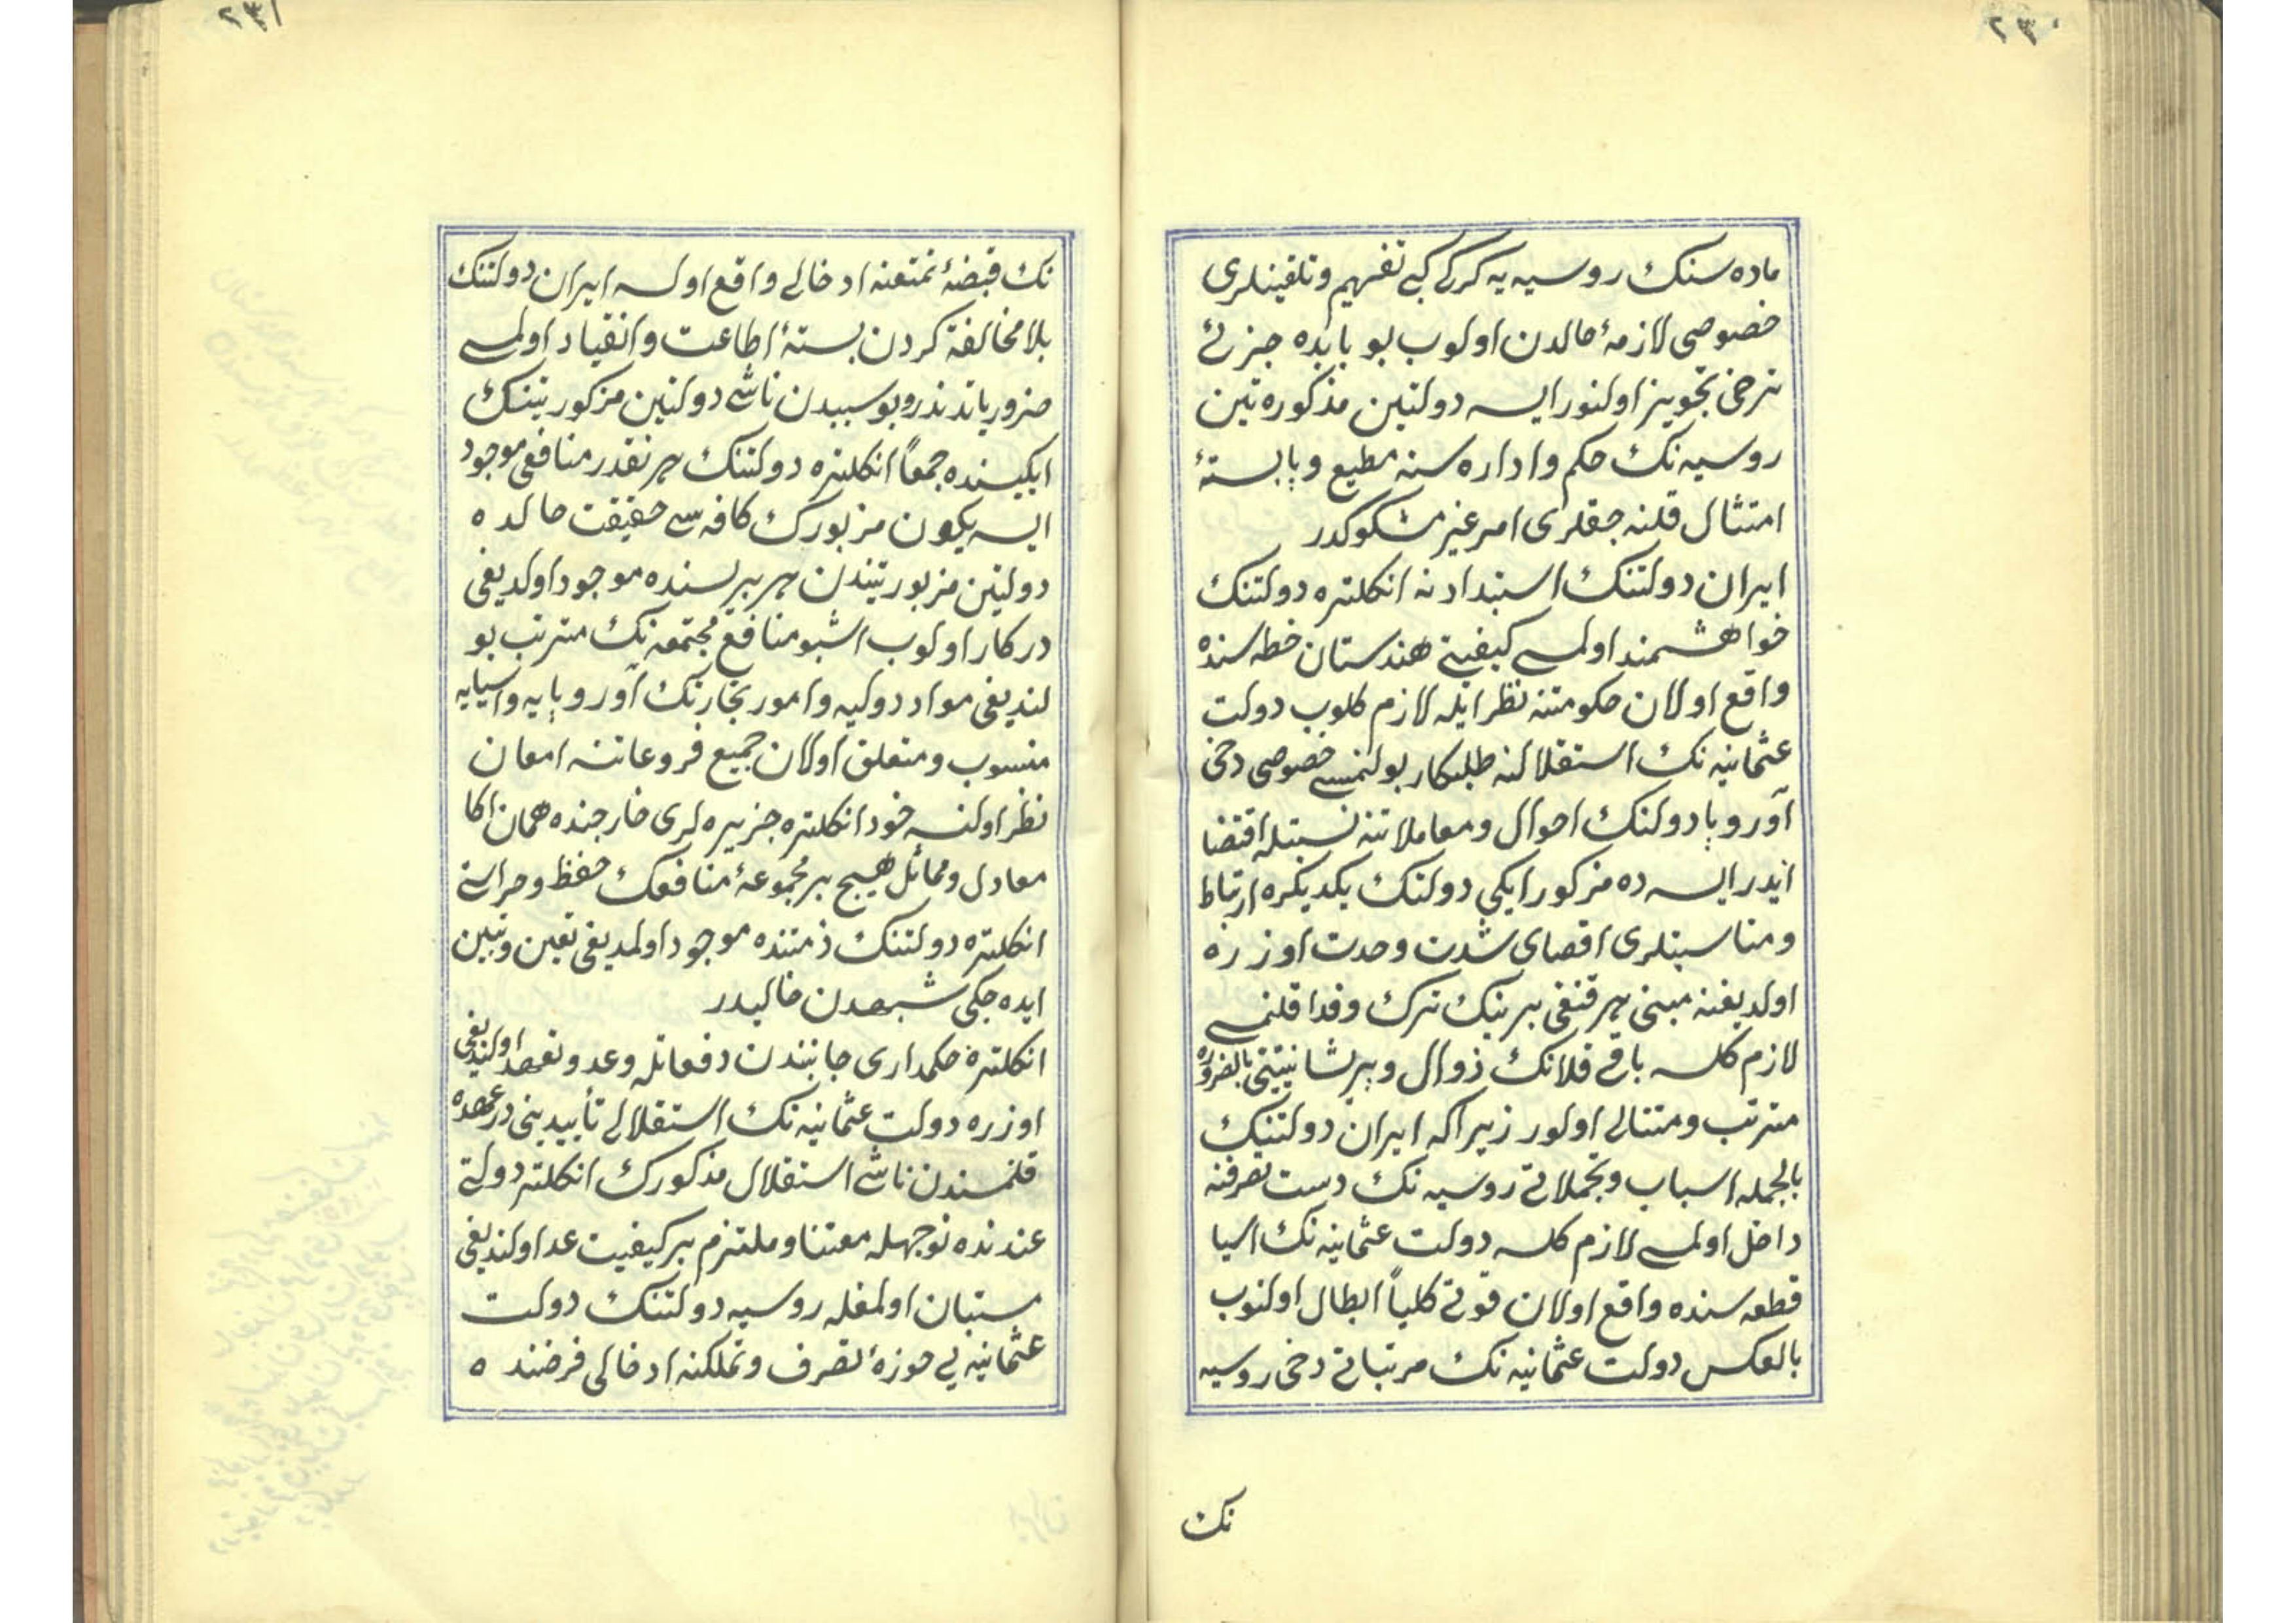 ٢٣٠
ماده‌سنك روسیه‌یه كركی كبی تفهیم وتلقینلری
خصوصی لازمهٔ حالدن اولوب بو بابده جزئی
ترخی تجویز اولنور ایسه دولتین مذكوره‌تین
روسیه‌نك حكم واداره‌سنه مطیع وپابستهٔ
امتثال قلنه‌جقلری امر غیر مشكوكدر
ایران دولتنك استبدادنه انكلتره دولتنك
خواهشمند اولمسی كیفیتی هندستان خطه‌سنده
واقع اولان حكومتنه نظر ایله لازم كلوب دولت
عثمانیه‌نك استقلالنه طلبكار بولنمسی خصوصی دخی
آوروپا دولتنك احوال ومعاملاتنه نسبتله اقتضا
ایدر ایسه‌ده مزكور ایكی دولتك یكدیكره ارتباط
ومناسبتلری اقصای شدت وحدت اوزره
اولدیغنه مبنی هر قنغی برینك ترك وفدا قلنمسی
لازم كلسه باقی قلانك ذوال وپریشانیتینی بالضروره
مترتب ومتتالی اولور زیرا كه ایران دولتنك
بالجمله اسباب وتجملاتی روسیه‌نك دست تصرفنه
داخل اولمسی لازم كلسه دولت عثمانیه‌نك اسیا
قطعه‌سنده واقع اولان قوتی كلیاً ابطال اولنوب
بالعكس دولت عثمانیه‌نك مرتباتی دخی روسیه
نك
٢٣١
نك قبضهٔ تمتعنه ادخالی واقع اولسه ایران دولتنك
بلا مخالفة كردن بستهٔ اطاعت وانقیاد اولمسی
ضروریاتدندر وبو سببدن ناشی دولتین مزكورتینك
ایكیسنده جمعاً انكلتره دولتنك هر نقدر منافعی موجود
ایسه یكون مزبورك كافه‌سی حقیقت حالده
دولتین مزبورتیندن هر بریسنده موجود اولدیغی
دركار اولوب اشبو منافع مجتمعه‌نك مترتب بو
لندیغی مواد دولیه وامور تجارتك آوروپایه واسیایه
منسوب ومتعلق اولان جمیع فروعاتنه امعان
نظر اولنسه خود انكلتره جزیره‌لری خارجنده همان اكا
معادل ومماثل هیچ بر مجموعهٔ منافعك حفظ وحراستی
انكلتره دولتنك ذمتنده موجود اولمدیغی تعین وتبین
ایده‌جكی شبهه‌دن خالیدر
انكلتره حكمداری جانبندن دفعاتله وعد وتعهد اولندیغی
اوزره دولت عثمانیه‌نك استقلالی تأییدینی درعهده
قلنمسندن ناشی استقلال مذكورك انكلتره دولتی
عندنده نوجهله معتنا وملتزم بر كیفیت عد اولندیغی
مستبان اولمغله روسیه دولتنك دولت
عثمانیه‌یی حوزهٔ تصرف وتملكنه ادخالی فرضنده